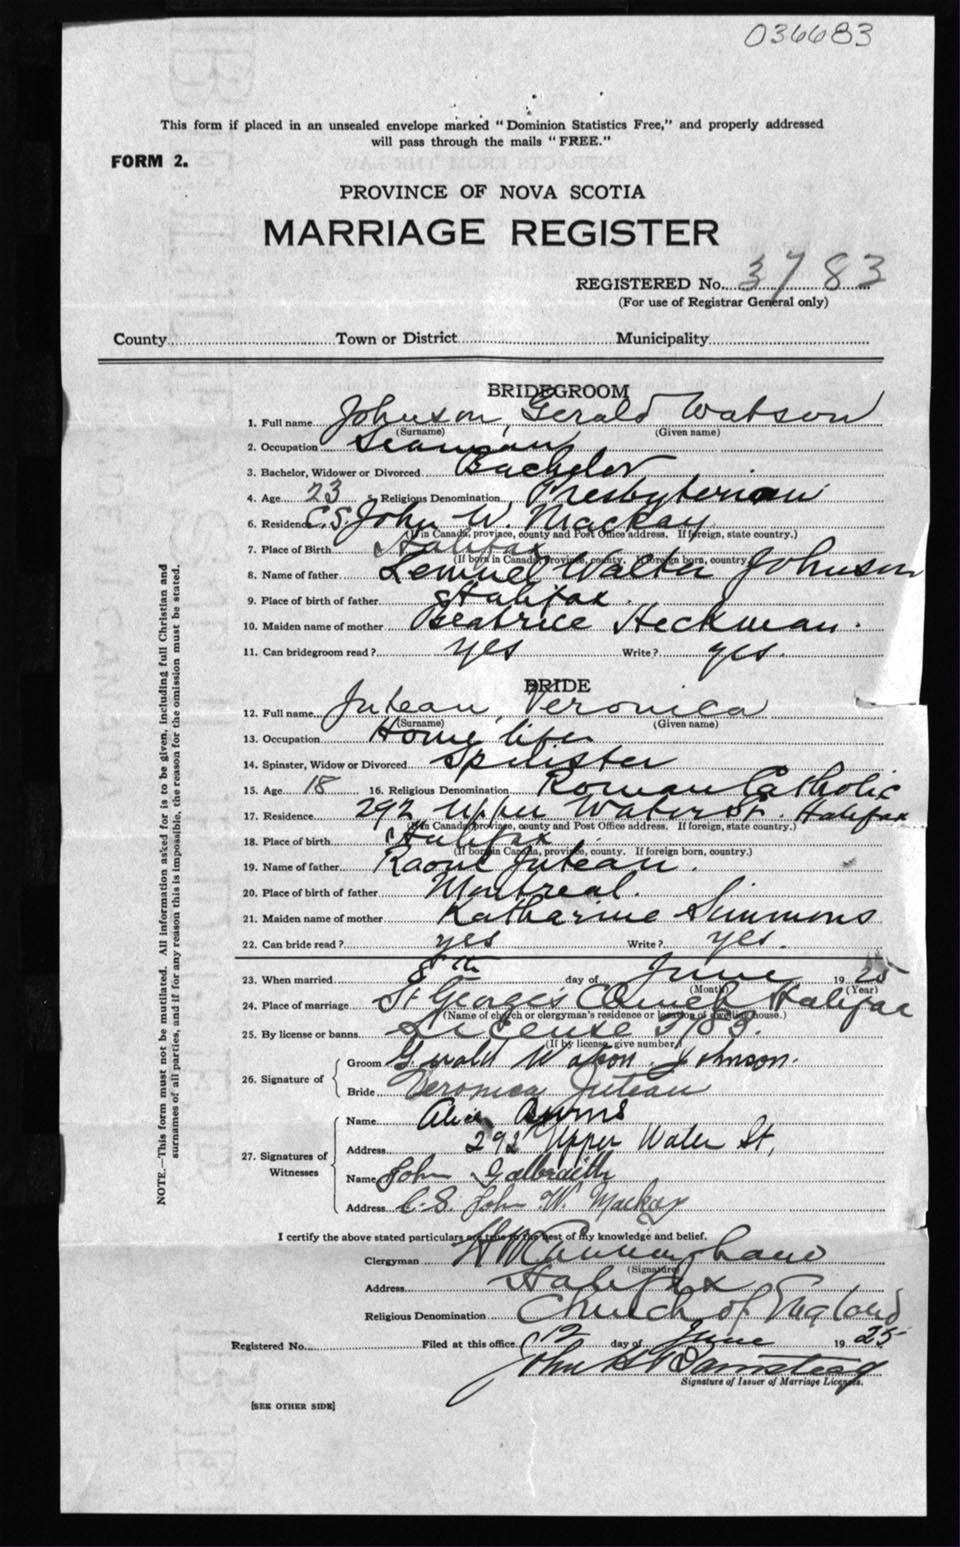 036683
This form if placed in an unsealed envelope marked "Dominion Statistics Free," and properly addressed
will pass through the mails "FREE."
FORM 2.
PROVINCE OF NOVA SCOTIA
MARRIAGE REGISTER
REGISTERED No. 3783
(For use of Registrar General only)
County Town or District Municipality
BRIDEGROOM
1. Full name Johnson, Gerald Watson
(Surname) (Given name)
2. Occupation Seaman
3. Bachelor, Widower or Divorced Bachelor
4. Age 23 Religious Denomination Presbyterian
6. Residence C.S. John W. Mackay
(If in Canada, province, county and Post Office address. If foreign, state country.)
7. Place of Birth Halifax
(If born in Canada, province, county. If foreign born, country.)
8. Name of father Lemuel Walter Johnson
9. Place of birth of father Halifax.
10. Maiden name of mother Beatrice Heckman.
11. Can bridegroom read? yes Write? yes.
BRIDE
12. Full name Juteau, Veronica
(Surname) (Given name)
13. Occupation Home life
14. Spinster, Widow or Divorced Spinster
15. Age 18 16. Religious Denomination Roman Catholic
17. Residence 292 Upper Water St. Halifax
(If in Canada, province, county and Post Office address. If foreign, state country.)
18. Place of birth Halifax
(If born in Canada, province, county. If foreign born, country.)
19. Name of father Raoul Juteau.
20. Place of birth of father Montreal.
21. Maiden name of mother Katharine Simmons
22. Can bride read? yes Write? yes.
23. When married 8th day of June 1925
(Month) (Year)
24. Place of marriage St George's Church Halifax
(Name of church or clergyman's residence or location of dwelling house.)
25. By license or banns License 3783.
(If by license, give number)
26. Signature of
Groom Gerald Watson Johnson.
Bride Veronica Juteau
27. Signatures of Witnesses
Name Alice Burns
Address 292 Upper Water St,
Name John Galbraith
Address C.S. John W. Mackay
I certify the above stated particulars are true to the best of my knowledge and belief.
Clergyman H W Cunningham
(Signature)
Address Halifax
Religious Denomination Church of England
Registered No. Filed at this office 12 day of June 1925
John H
Signature of Issuer of Marriage Licenses.
[SEE OTHER SIDE]
NOTE.—This form must not be mutilated. All information asked for is to be given, including full Christian and
surnames of all parties, and if for any reason this is impossible, the reason for the omission must be stated.